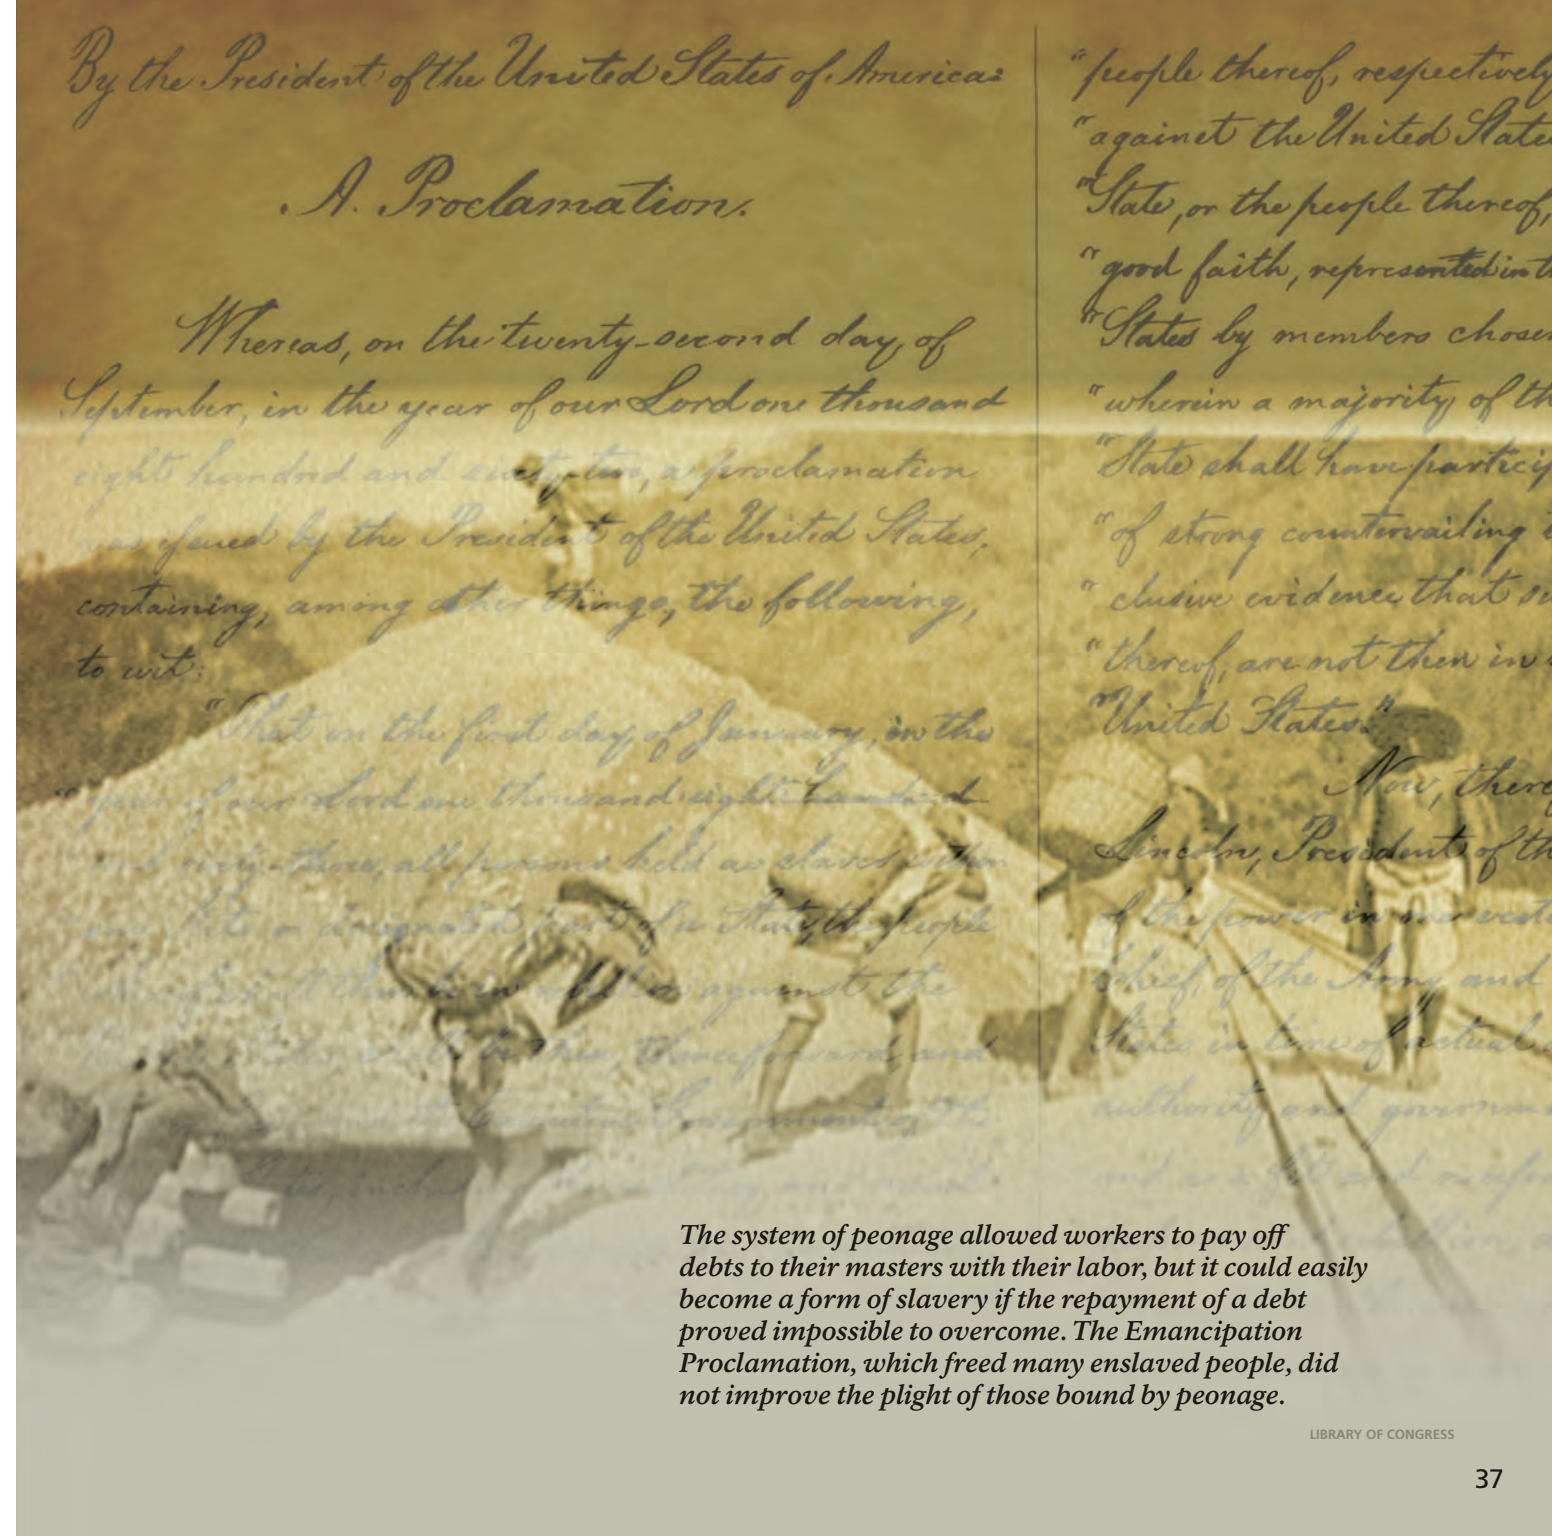 By the President of the United States of America:
A Proclamation.
Whereas, on the twenty-second day of
September, in the year of our Lord one thousand
eight hundred and sixty-two, a proclamation
was issued by the President of the United States,
containing, among other things, the following,
to wit:
"That on the first day of January, in the
"year of our Lord one thousand eight hundred
and sixty-three, all persons held as slaves within
any State or designated part of a State, the people
against the
then, thenceforward, and
the
"people thereof, respectively
"against the United State
"State, or the people thereof,
"good faith, represented in
"States by members chosen
"wherein a majority of
"State shall have
"of strong countervailing
"clusive evidence that
"thereof, are not then in
"United States."
Now,
Lincoln, President of
of the power in me
Chief, of the Army and
States in time of actual
authority and
and as a fit and
The system of peonage allowed workers to pay off
debts to their masters with their labor, but it could easily
become a form of slavery if the repayment of a debt
proved impossible to overcome. The Emancipation
Proclamation, which freed many enslaved people, did
not improve the plight of those bound by peonage.
LIBRARY OF CONGRESS
37